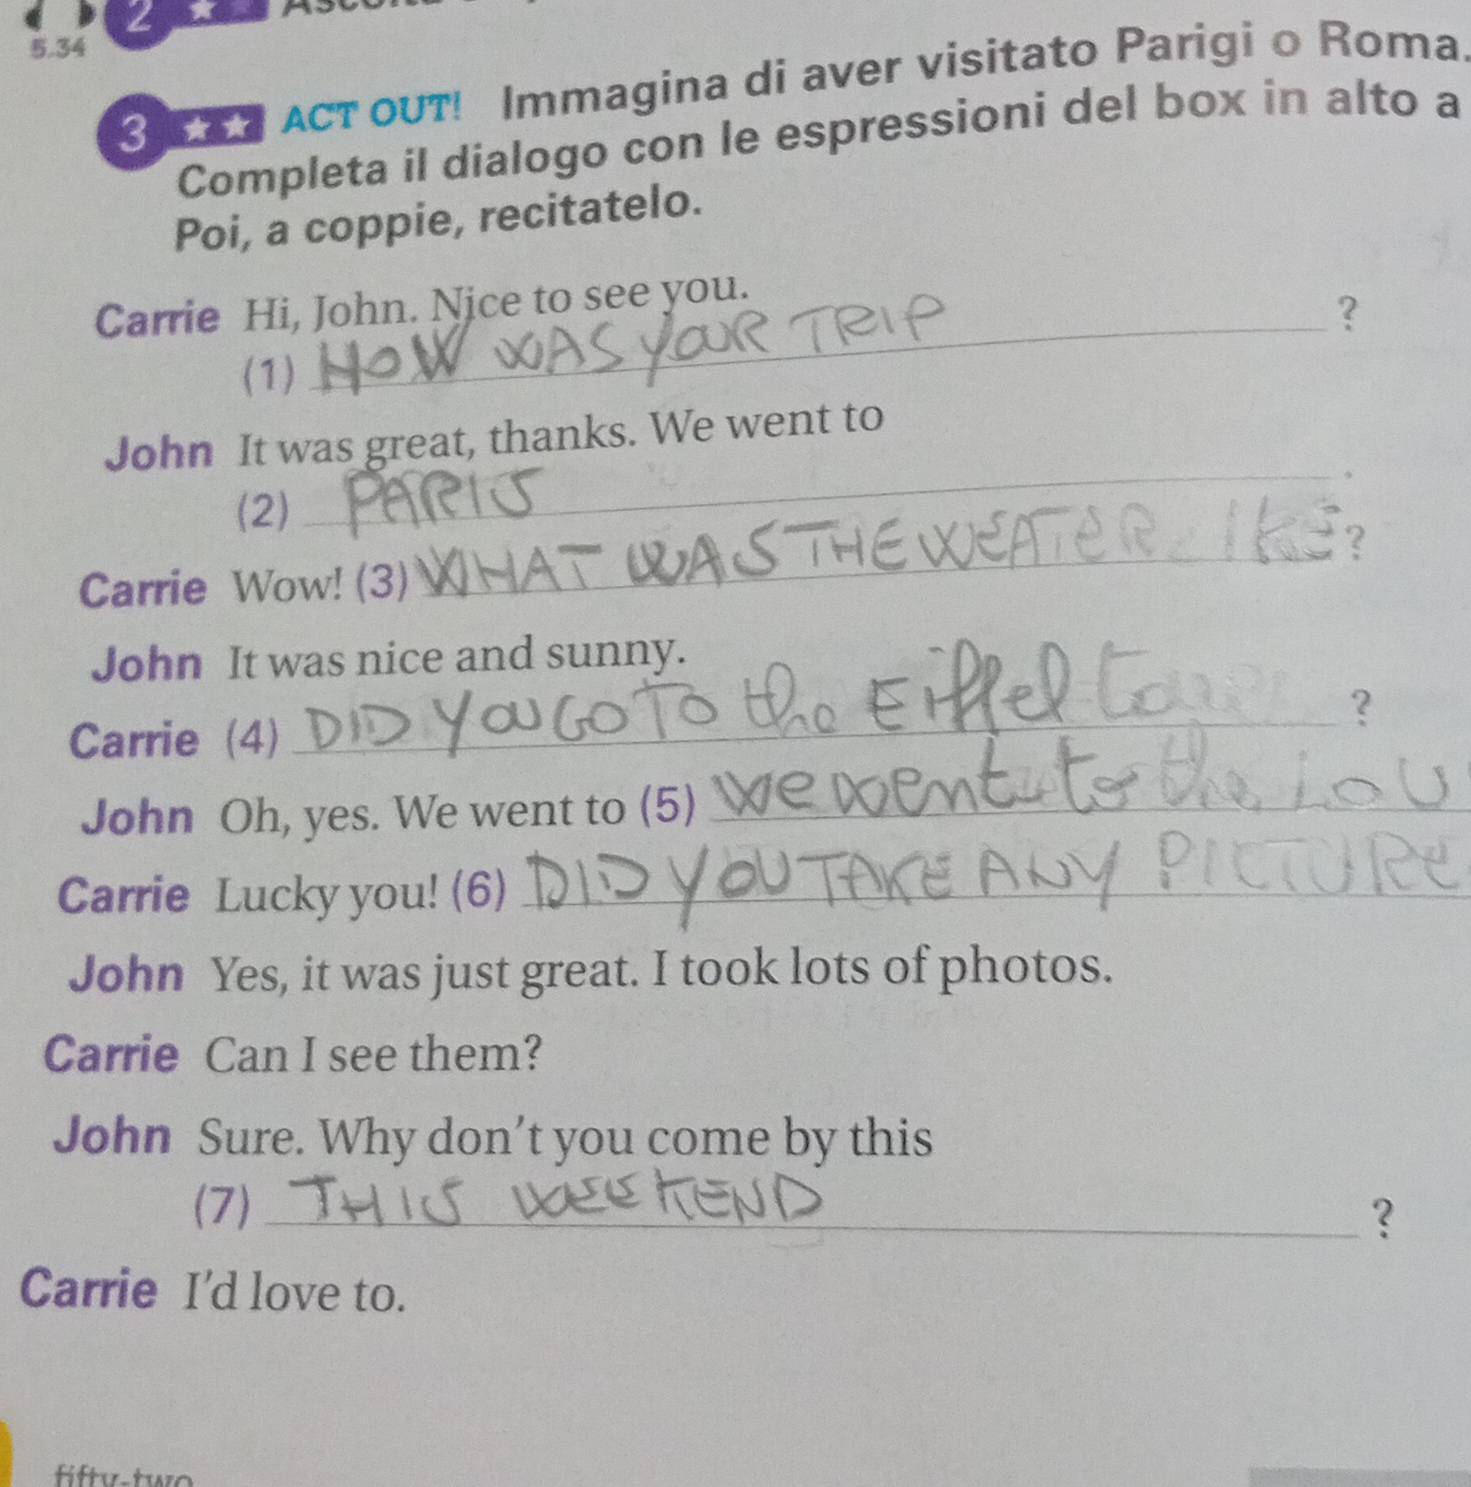 5.34
2
3 ACT OUT! Immagina di aver visitato Parigi o Roma.
Completa il dialogo con le espressioni del box in alto a
Poi, a coppie, recitatelo.
Carrie Hi, John. Nice to see you.
(1) HOW WAS YOUR TRIP ?
John It was great, thanks. We went to
(2) PARIS .
Carrie Wow! (3) WHAT WAS THE WEATER LIKE ?
John It was nice and sunny.
Carrie (4) DID YOU GO TO the Eiffel tower ?
John Oh, yes. We went to (5) we went to the Lou
Carrie Lucky you! (6) DID YOU TAKE ANY PICTURE
John Yes, it was just great. I took lots of photos.
Carrie Can I see them?
John Sure. Why don't you come by this
(7) THIS WEEKEND ?
Carrie I'd love to.
fifty-two